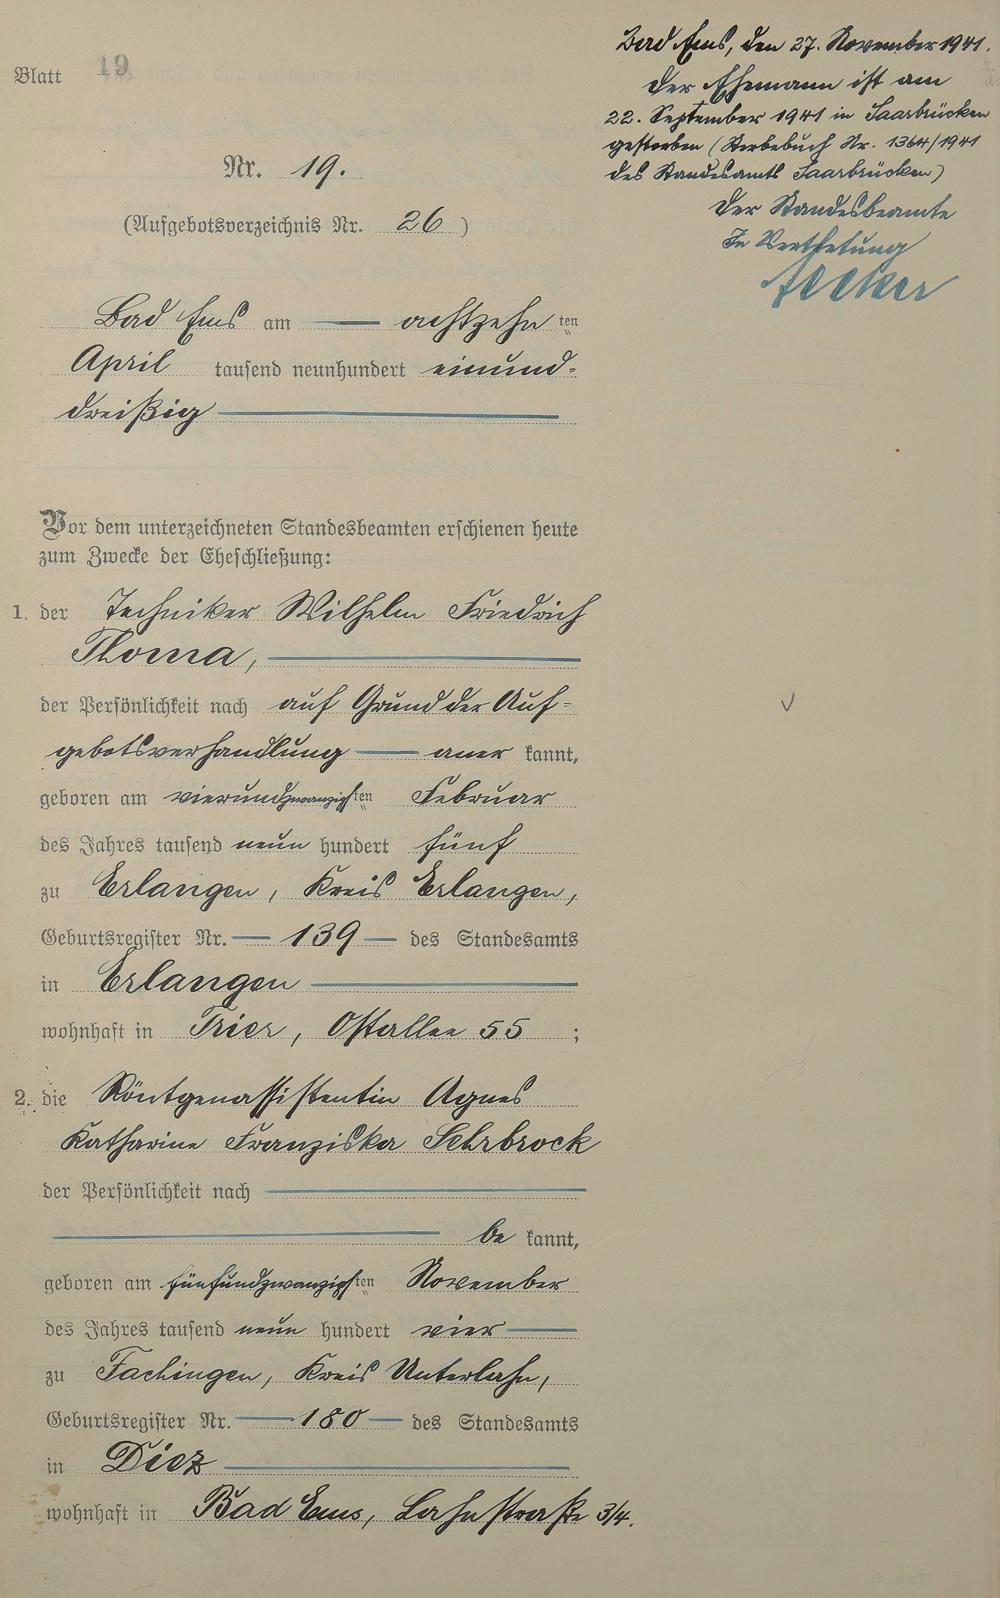 Blatt 19
Nr. 19.
(Aufgebotsverzeichnis Nr. 26)
Bad Ems am achtzehnten
April tausend neunhundert einund-
dreißig
Vor dem unterzeichneten Standesbeamten erschienen heute
zum Zwecke der Eheschließung:
1. der Techniker Wilhelm Friedrich
Thoma,
der Persönlichkeit nach auf Grund der Auf-
gebotsverhandlung aner kannt,
geboren am vierundzwanzigsten Februar
des Jahres tausend neun hundert fünf
zu Erlangen, Kreis Erlangen,
Geburtsregister Nr. 139 des Standesamts
in Erlangen
wohnhaft in Trier, Ostallee 55 ;
2. die Röntgenassistentin Agnes
Katharine Franziska Sehrbrock
der Persönlichkeit nach
be kannt,
geboren am fünfundzwanzigsten November
des Jahres tausend neun hundert vier
zu Fachingen, Kreis Unterlahn,
Geburtsregister Nr. 180 des Standesamts
in Diez
wohnhaft in Bad Ems, Lahnstraße 3/4.
Bad Ems, den 27. November 1941.
Der Ehemann ist am
22. September 1941 in Saarbrücken
gestorben (Sterbebuch Nr. 1364/1941
des Standesamts Saarbrücken)
Der Standesbeamte
In Vertretung